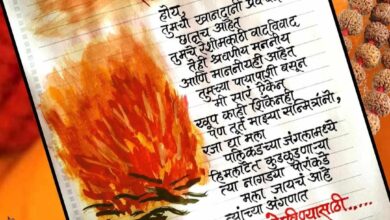 होय,
तुमची खानदानी
छानच आहेत
तुमचे रेशीमकाठी वादविवाद
तेही श्रवणीय मननीय
आणि माननीयही आहेत
तुमच्या पायापाशी बसून
मी सारं ऐकेन
खूप काही शिकेनही
पण तूर्त माझ्या सन्मित्रांनो,
रजा द्या मला
पलिकडच्या जंगलामध्ये
हिमलाटेत कुडकुडणाऱ्या
त्या नागड्या पोरांकडे
मला जायचं आहे
त्यांच्या अंगणात